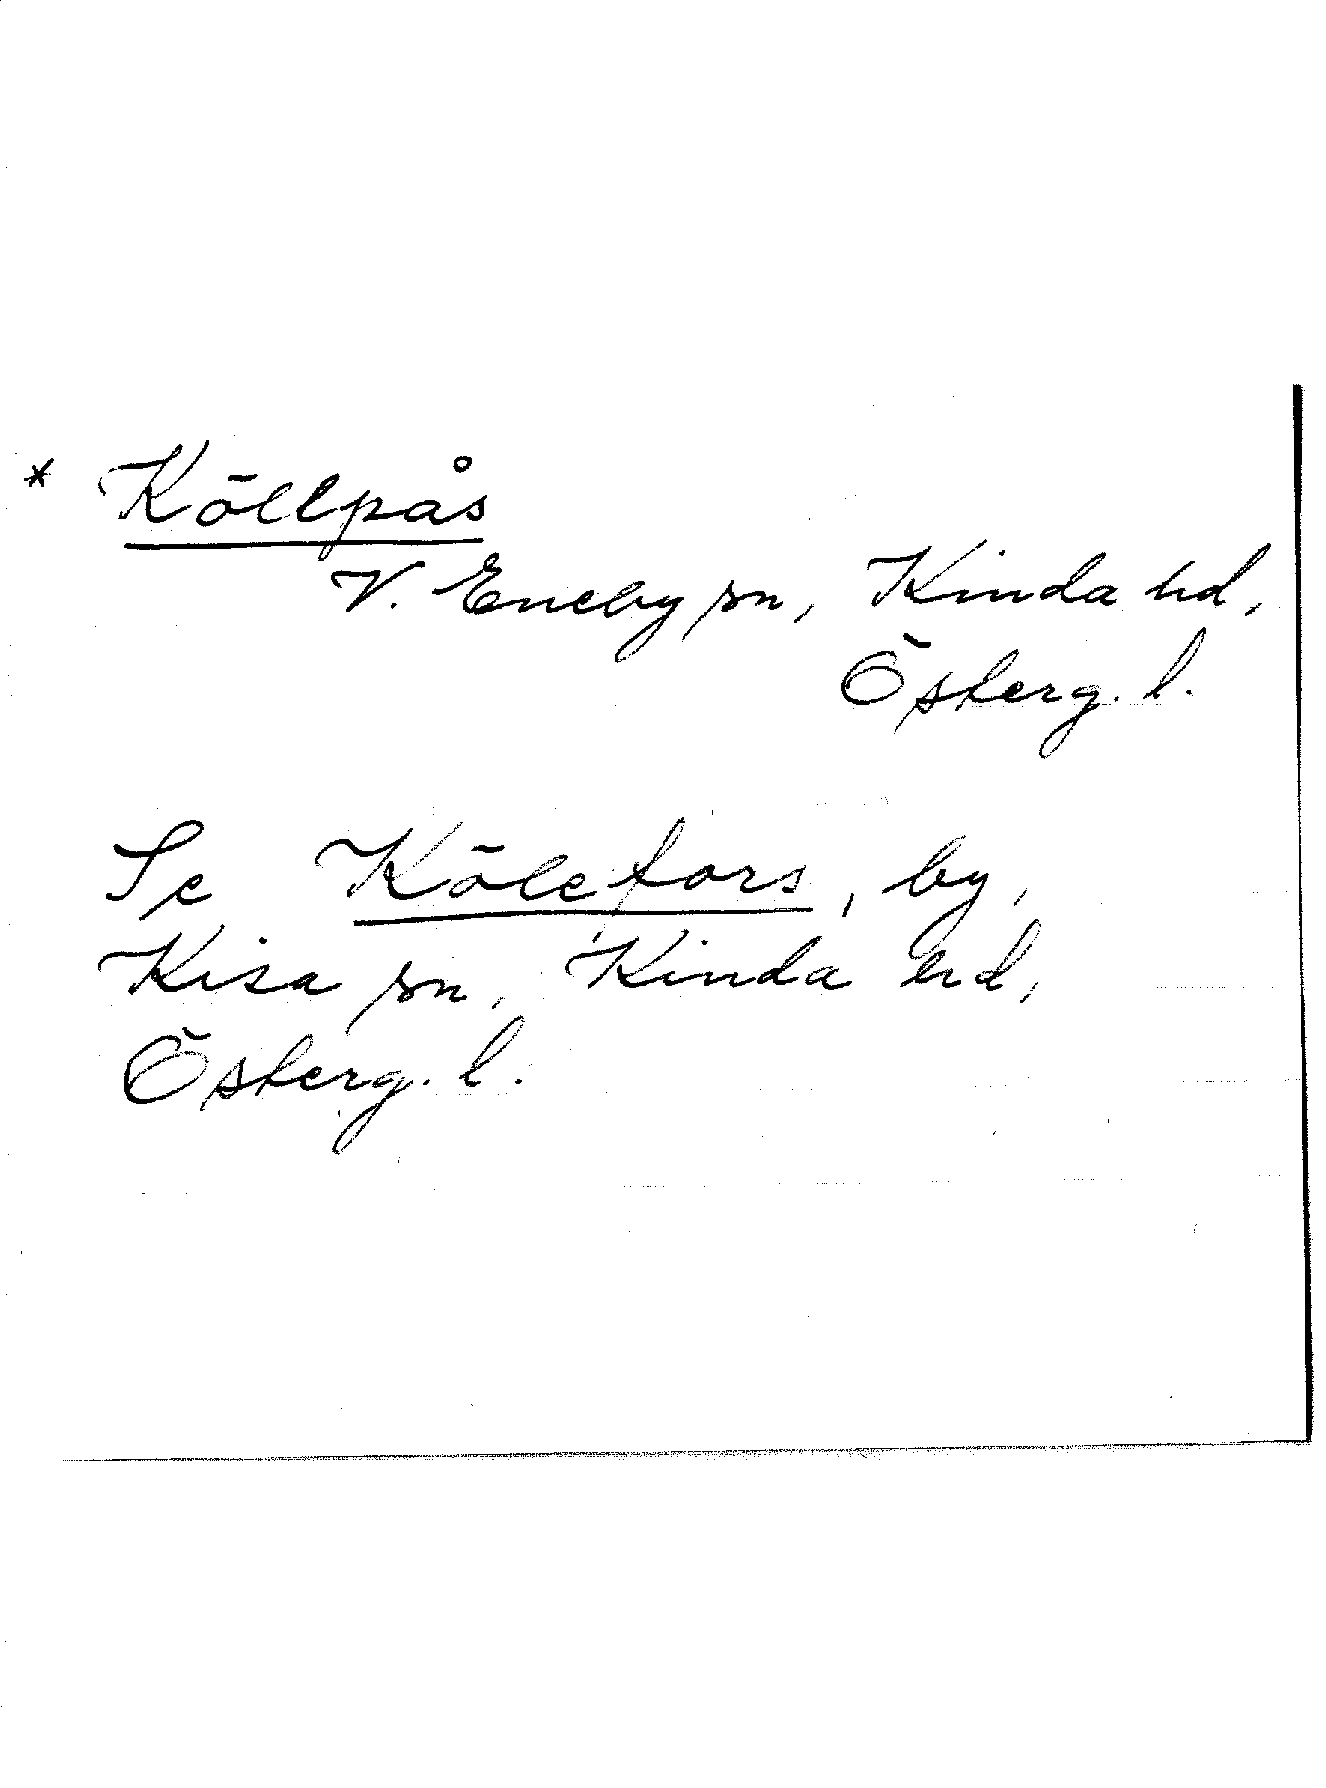 * Köllpås
V. Eneby sn, Kinda hd,
Österg. l.
Se Kölefors, by,
Kisa sn, Kinda hd,
Österg. l.